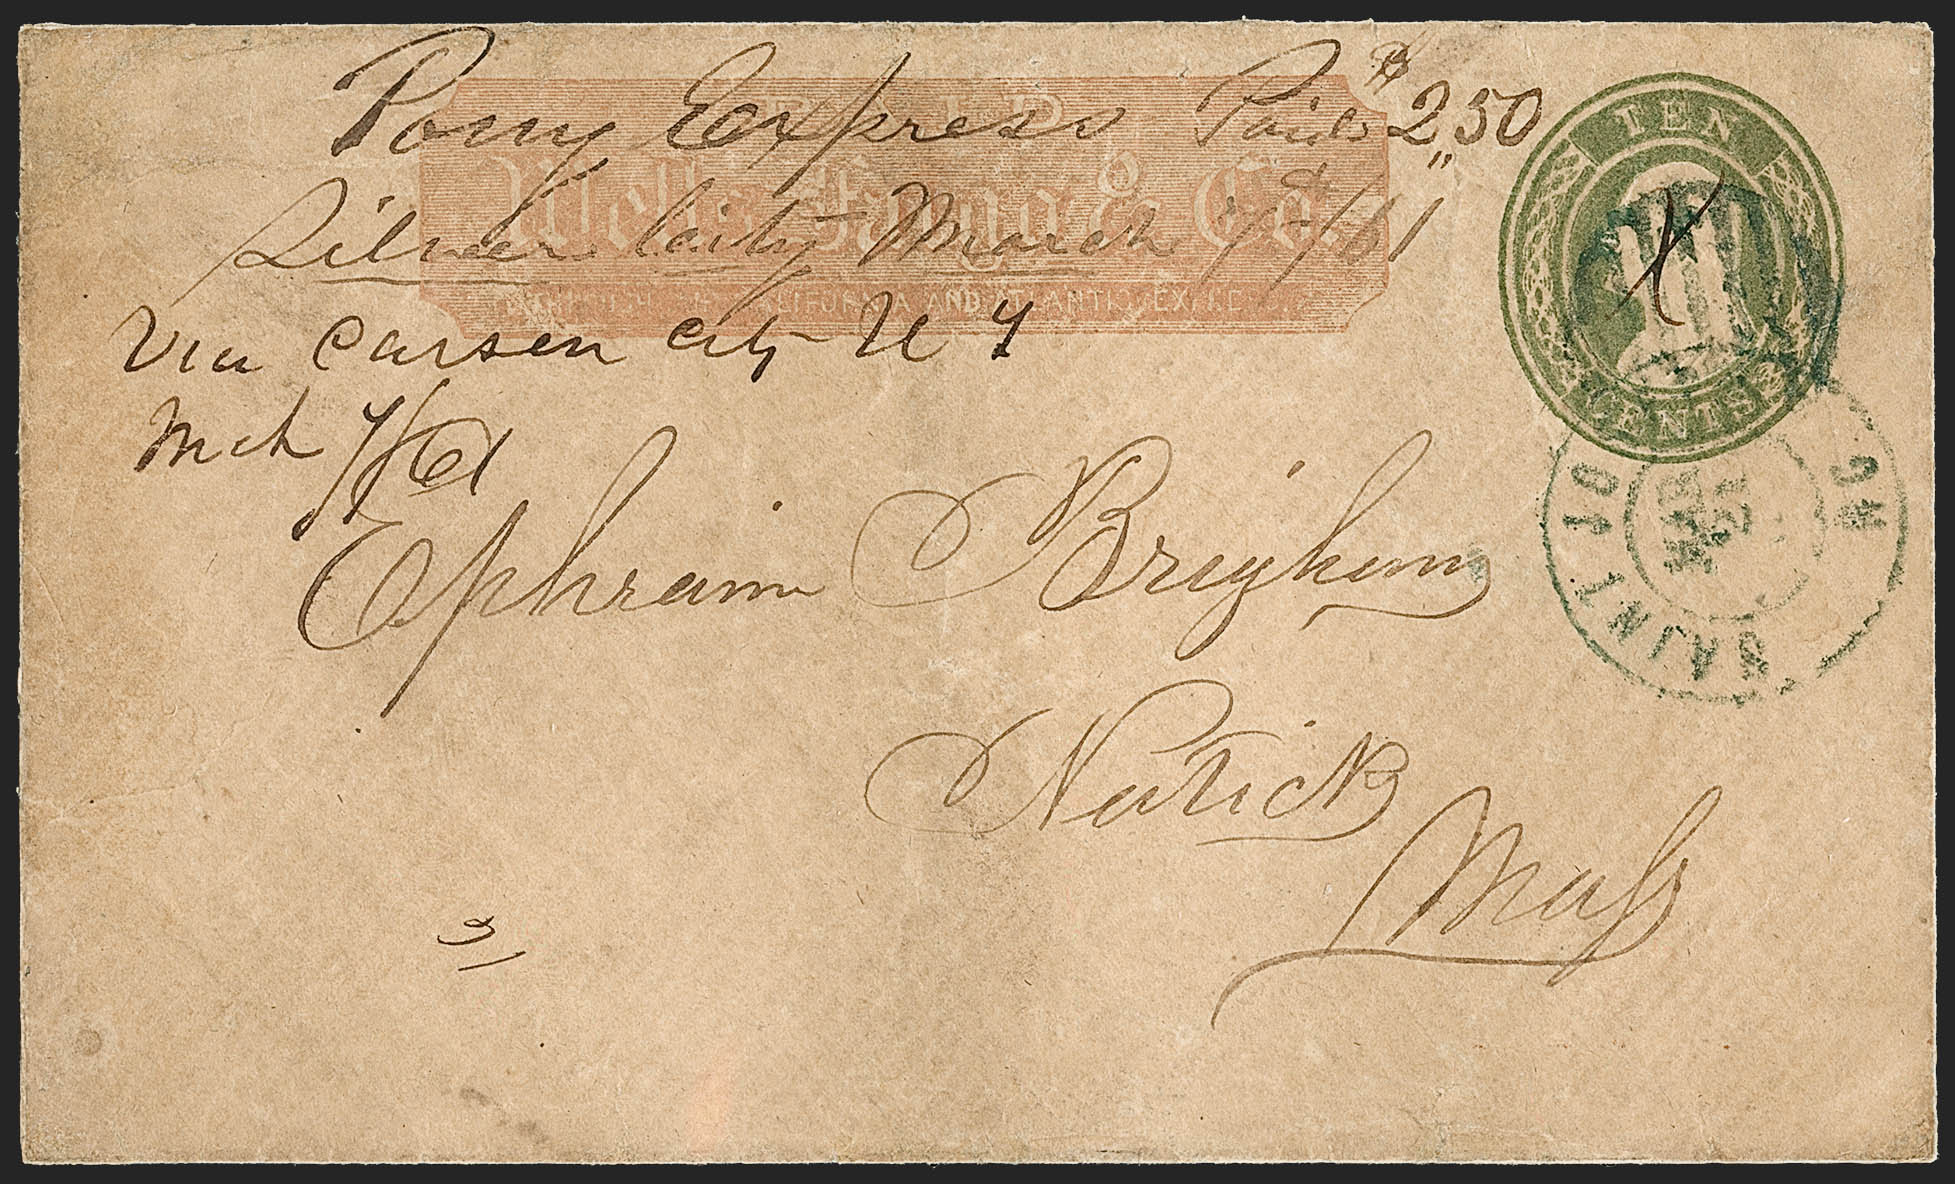 Pony Express Paid $2,50
PAID
Wells, Fargo & Co.
THROUGH OUR CALIFORNIA AND ATLANTIC EXPRESS
Silver City March 7/61
Via Carson City U T
Mch 7/61
Ephraim Brigham
Natick
Mass
TEN
CENTS
SAINT JO
MO
MAR
21